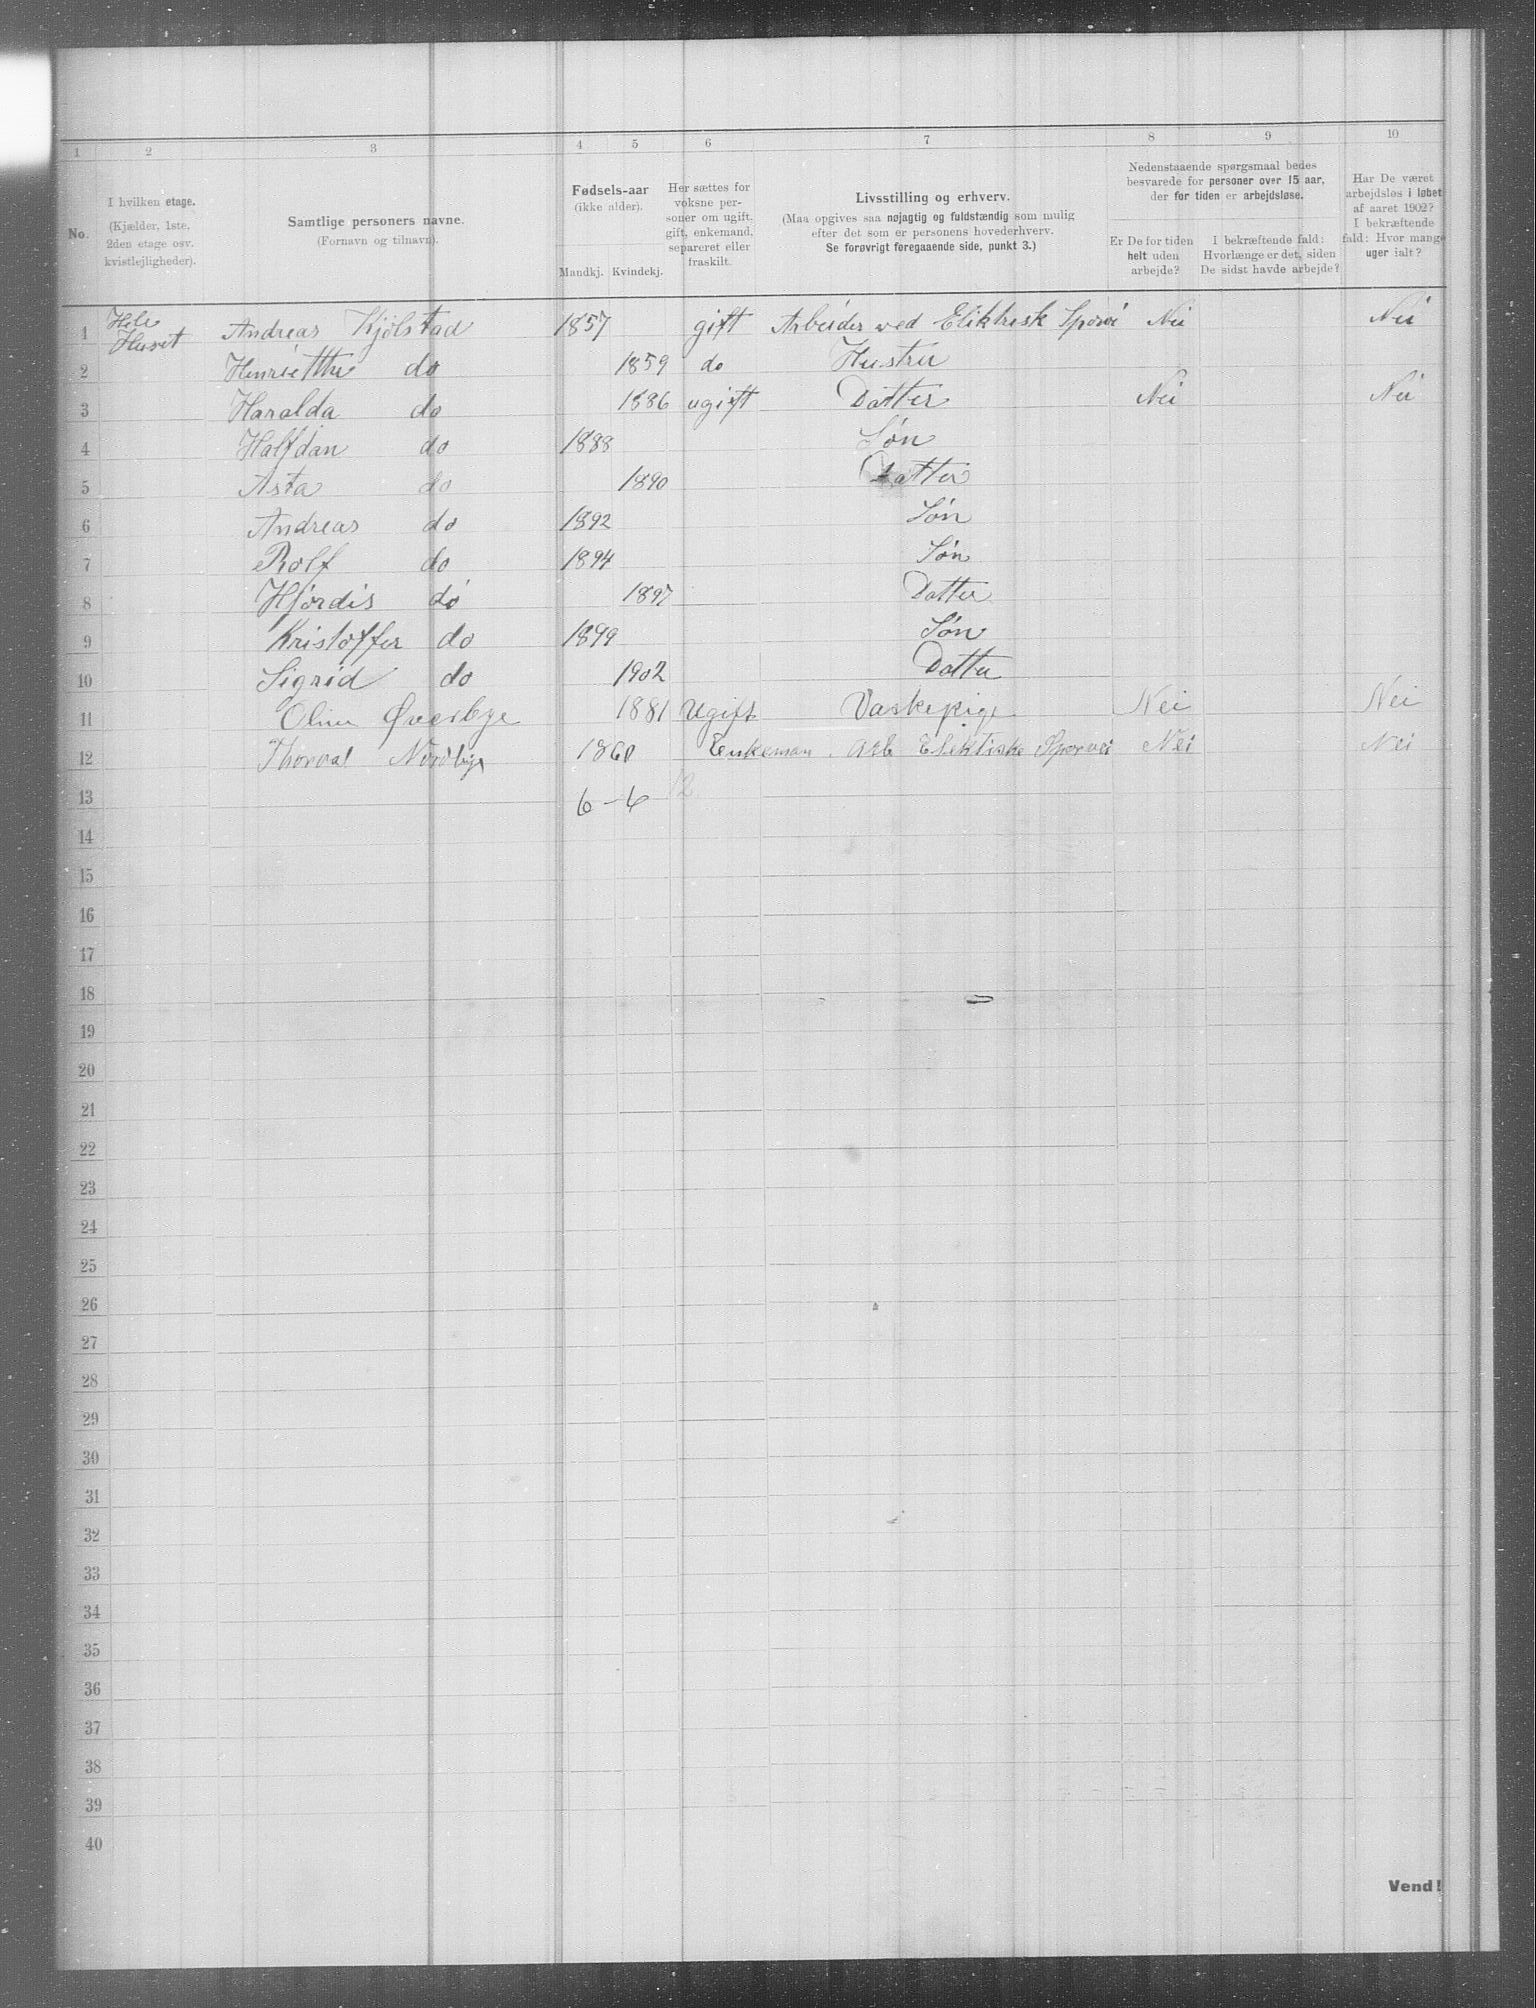 1 2 3 4 5 6 7 8 9 10
No.
I hvilken etage.
(Kjælder, 1ste.
2den etage osv.
kvistlejligheder).
Samtlige personers navne.
(Fornavn og tilnavn).
Fødsels-aar
(ikke alder).
Mandkj. Kvindekj.
Her sættes for
voksne per-
soner om ugift.
gift, enkemand,
separeret eller
fraskilt.
Livsstilling og erhverv.
(Maa opgives saa nøjagtig og fuldstændig som mulig
efter det som er personens hovederhverv.
Se forøvrigt føregaaende side, punkt 3.)
Nedenstaaende spørgsmaal bedes
besvarede for personer over 15 aar,
der for tiden er arbejdsløse.
Er De for tiden
helt uden
arbejde?
I bekræftende fald:
Hvorlænge er det, siden
De sidst havde arbejde?
Har De været
arbejdsløs i løbet
af aaret 1902?
I bekræftende
fald: Hvor mange
uger ialt?
1 Hele Huset Andreas Kjölstad 1857 gift Arbeider ved Eliktrisk Sporvi Nei Nei
2 Henrietthe do 1859 do Hustru
3 Haralda do 1886 ugift Datter Nei Nei
4 Halfdan do 1888 Søn
5 Asta do 1890 Datter
6 Andreas do 1892 Søn
7 Rolf do 1894 Søn
8 Hjördis do 1897 Datter
9 Kristoffer do 1899 Søn
10 Sigrid do 1902 Datter
11 Oline Øverbye 1881 Ugift Vaskepige Nei Nei
12 Thorval Nordbye 1860 Enkeman Arb Elektiske Sporvei Nei Nei
13 6-6 12
14
15
16
17
18
19
20
21
22
23
24
25
26
27
28
29
30
31
32
33
34
35
36
37
38
39
40
Vend!